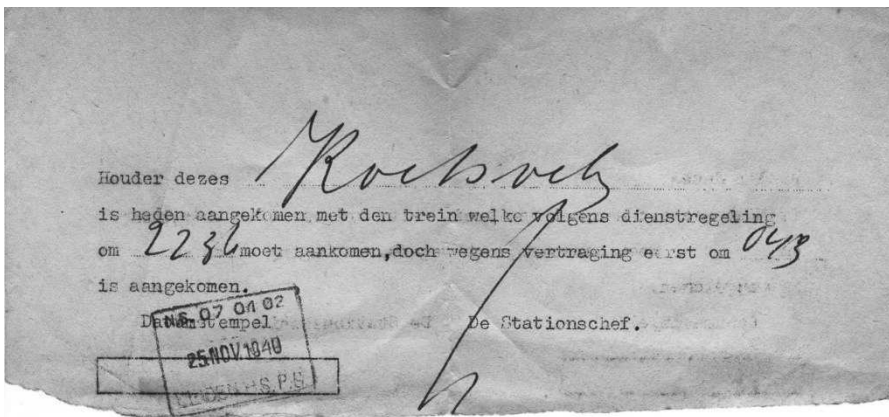 Houder dezes
is heden aangekomen met den trein welke volgens dienstregeling
om 2236 moet aankomen,doch wegens vertraging eerst om 0413
is aangekomen.
Datumstempel De Stationschef.
N.S. 07 01 02
25 NOV. 1940